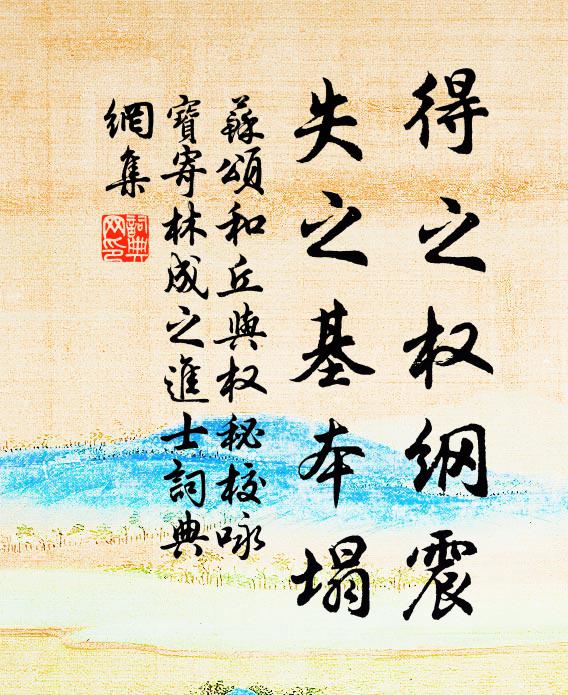 得之权纲震
失之基本塌
蘇頌和丘與权秘校咏
寶寄林成之進士詞典
網集
詞典网印